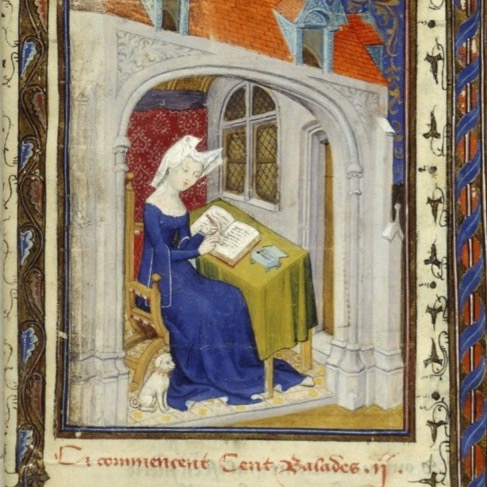 Ci commencent Cent Balades .ij